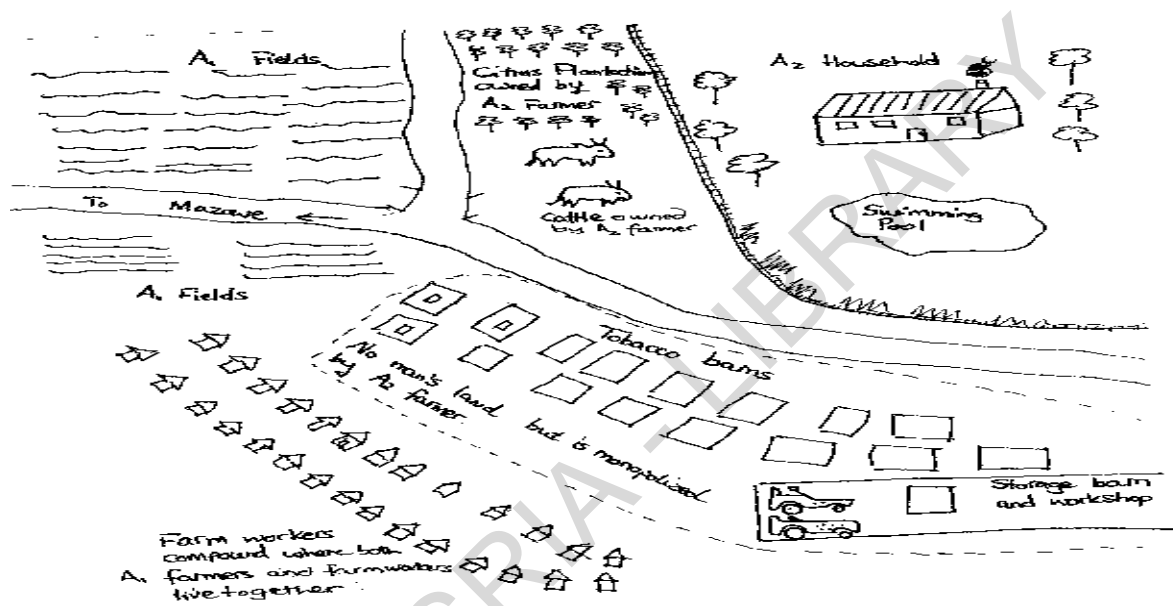 A1 Fields
Citrus Plantation
owned by
A2 Farmer
A2 Household
To Mazowe
Cattle owned
by A2 farmer
Swimming
Pool
A1 Fields
Tobacco barns
No man's land but is monopolised
by A2 farmer
Storage barn
and workshop
Farm workers
compound where both
A1 farmers and farmworkers
live together
RIA - LIBRARY